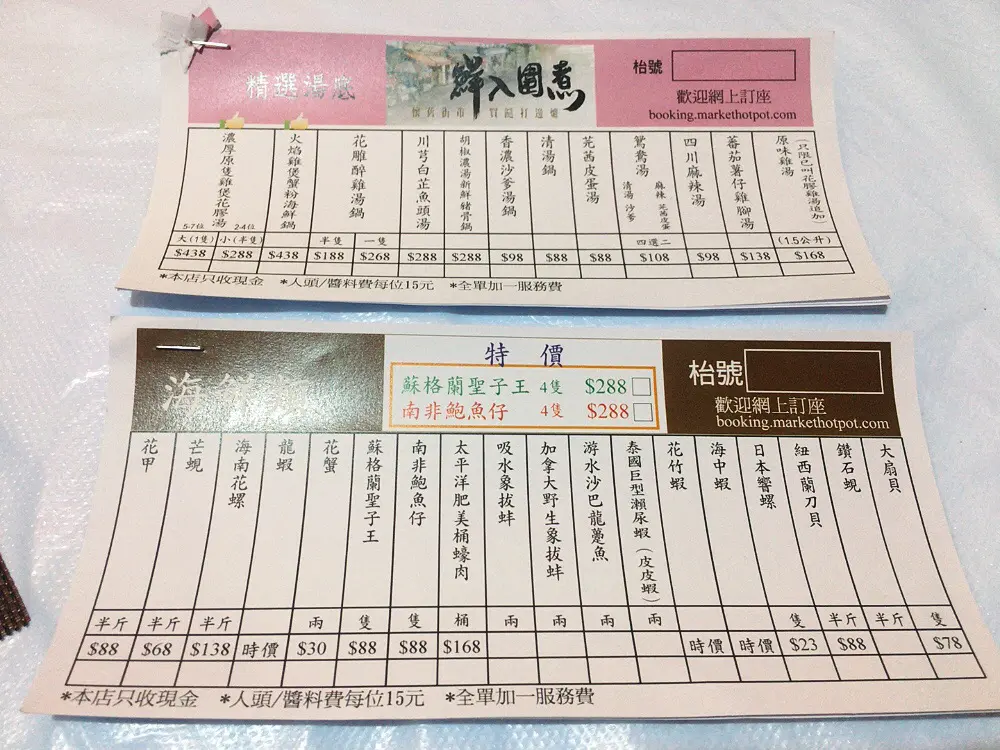 精選湯底
鮮入圍煮
懷舊街市 買餸打邊爐
枱號
歡迎網上訂座
booking.markethotpot.com
原味雞湯
(只限已叫花膠雞湯追加)
蕃茄薯仔雞腳湯
四川麻辣湯
鴛鴦湯
麻辣 芫茜皮蛋
清湯 沙爹
芫茜皮蛋湯
清湯鍋
香濃沙爹湯鍋
胡椒濃湯新鮮豬骨鍋
川芎白芷魚頭湯
花雕醉雞湯鍋
火焰雞煲蟹粉海鮮鍋
濃厚原隻雞煲花膠湯
5-7位 2-4位
大(1隻) 小(半隻) 半隻 一隻 四選二 (1.5公升)
$438 $288 $438 $188 $268 $288 $288 $98 $88 $88 $108 $98 $138 $168
*本店只收現金 *人頭/醬料費每位15元 *全單加一服務費
海鮮
特 價
蘇格蘭聖子王 4隻 $288
南非鮑魚仔 4隻 $288
枱號
歡迎網上訂座
booking.markethotpot.com
大扇貝
鑽石蜆
紐西蘭刀貝
日本響螺
海中蝦
花竹蝦
泰國巨型瀨尿蝦(皮皮蝦)
游水沙巴龍躉魚
加拿大野生象拔蚌
吸水象拔蚌
太平洋肥美桶蠔肉
南非鮑魚仔
蘇格蘭聖子王
花蟹
龍蝦
海南花螺
芒蜆
花甲
半斤 半斤 半斤 兩 隻 隻 桶 兩 兩 兩 兩 隻 半斤 半斤 隻
$88 $68 $138 時價 $30 $88 $88 $168 時價 時價 $23 $88 $78
*本店只收現金 *人頭/醬料費每位15元 *全單加一服務費